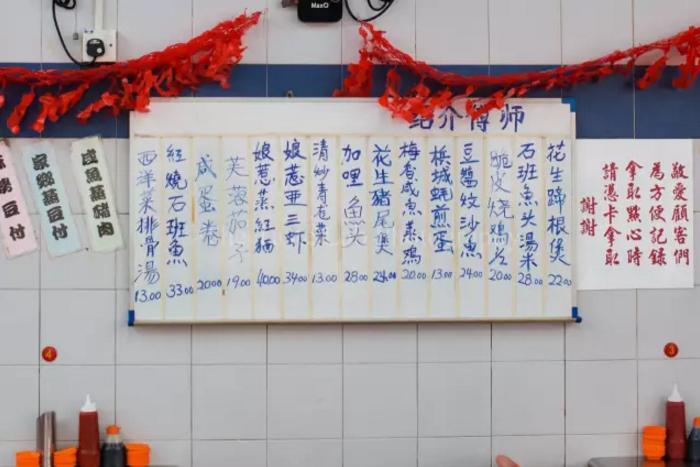 MaxO
敬愛顧客們
為方便記錄
拿取點心時
請憑卡拿取
謝謝
师傅介绍
花生蹄根煲 22.00
石班魚头湯米 28.00
脆皮烧鷄 20.00
豆醬蚊沙魚 24.00
梹城蚝煎蛋 13.00
梅香咸魚蒸鷄 20.00
花生豬尾煲 24.00
加哩魚头 28.00
清炒菜 13.00
娘惹亜三虾 34.00
娘惹蒸紅鲳 40.00
芙蓉茄子 19.00
咸蛋卷 20.00
紅燒石班魚 33.00
西洋菜排骨湯 13.00
咸魚蒸豬肉
家鄉蒸豆付
豆付
4
3